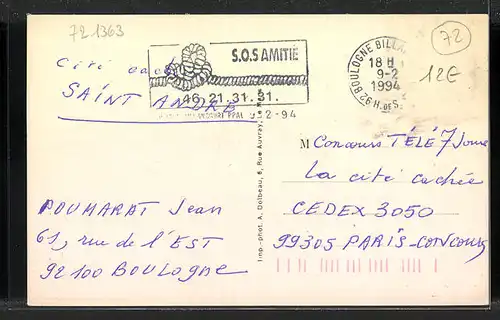 72 1363
72
12€
S.O.S AMITIÉ
46.21.31.31.
9-2-94
BOULOGNE BILLA
18 H
9-2
1994
92 H. DE S.
Cité cachée
SAINT ANDRÉ
POUMARAT Jean
61, rue de l'EST
92100 BOULOGNE
Imp.-phot. A. Dolbeau, 6, Rue Auvray, Le Mans
M Concours TÉLÉ 7 Jours
La cité cachée
CEDEX 3050
99305 PARIS-CONCOURS